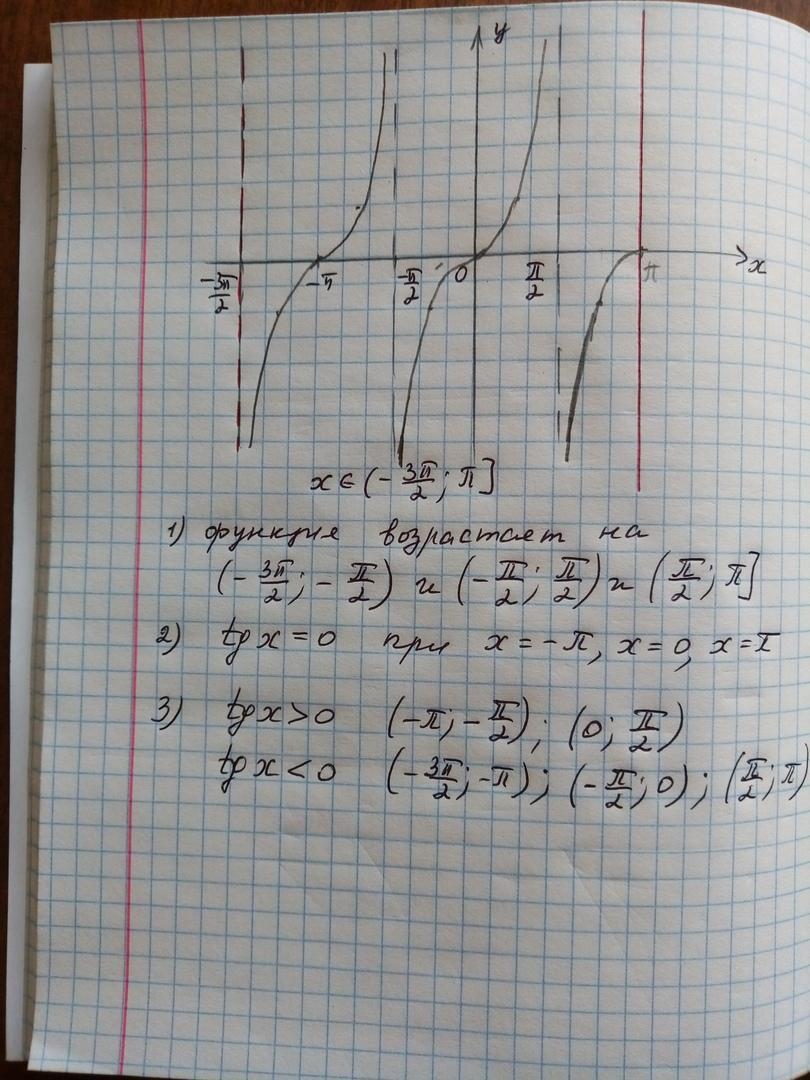 y
x
-3π/2 -π -π/2 0 π/2 π
x ∈ (- 3π/2 ; π]
1) функция возрастает на
(- 3π/2 ; - π/2) и (- π/2 ; π/2) и (π/2 ; π]
2) tg x = 0 при x = - π, x = 0, x = π
3) tg x > 0 (-π; - π/2) ; (0; π/2)
tg x < 0 (- 3π/2 ; -π) ; (- π/2 ; 0) ; (π/2 ; π)